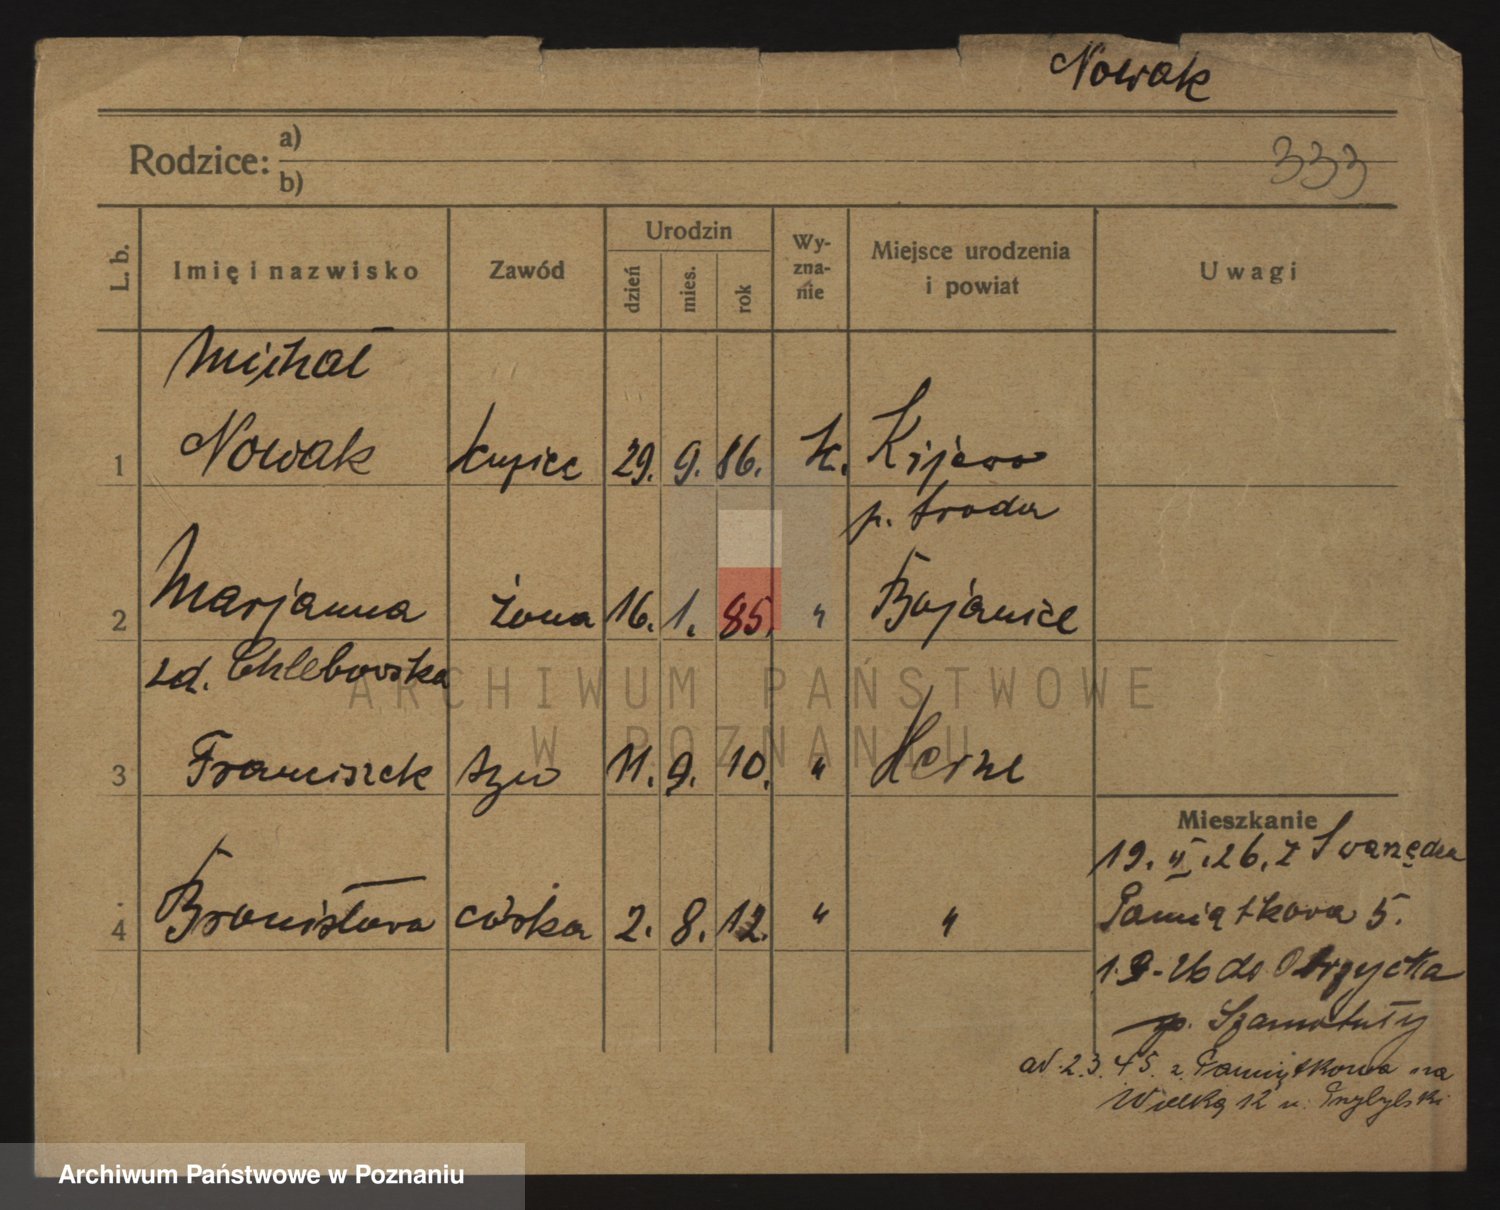 Nowak
Rodzice: a)
b)
333
L. b. Imię i nazwisko Zawód Urodzin dzień mies. rok Wy-zna-nie Miejsce urodzenia i powiat Uwagi
Michał
1 Nowak kupiec 29. 9. 86. k. Kijewo
p. Środa
2 Marjanna żona 16. 1. 85. " Bojanice
zd. Chlebowska
3 Franciszek syn 11. 9. 10. " Herne
4 Bronisława córka 2. 8. 12. " "
Mieszkanie
19. II. 26. z Swarzędza
Pamiątkowa 5.
1.9.26 do Obrzycka
p. Szamotuły
od 2.3.45. z Pamiątkowa na
Wielką 12 u. Przybylski
ARCHIWUM PAŃSTWOWE
W POZNANIU
Archiwum Państwowe w Poznaniu